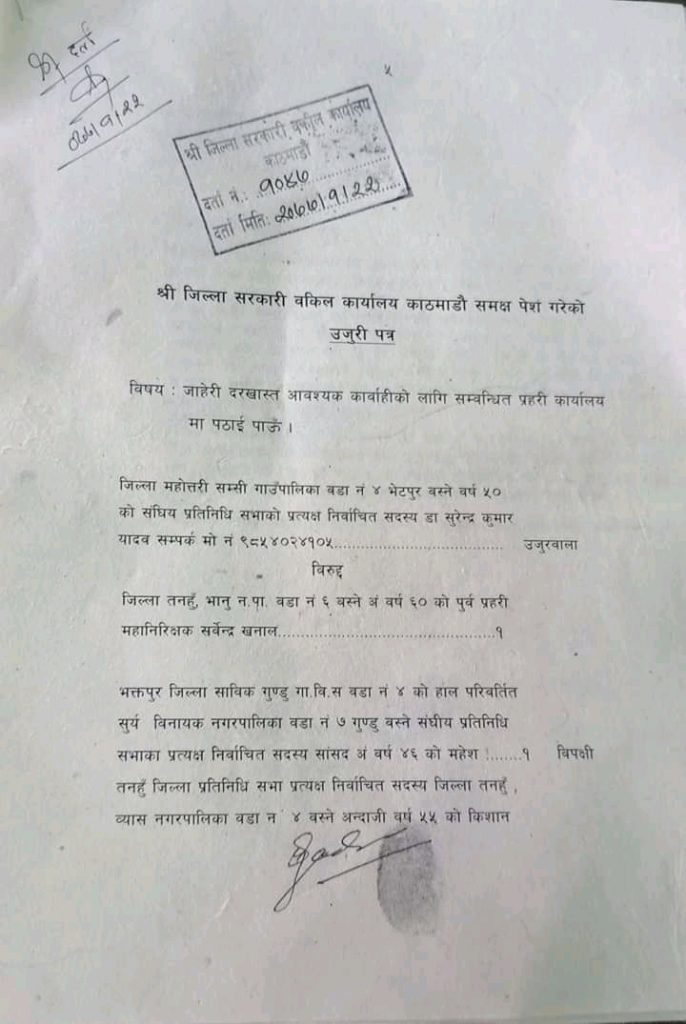 दर्ता
०७७/१/२२
श्री जिल्ला सरकारी वकील कार्यालय
काठमाडौं
दर्ता नं.: १०४७
दर्ता मिति: २०७७/१/२२
श्री जिल्ला सरकारी वकिल कार्यालय काठमाडौ समक्ष पेश गरेको
उजुरी पत्र
विषय : जाहेरी दरखास्त आवश्यक कार्वाहीको लागि सम्वन्धित प्रहरी कार्यालय
मा पठाई पाऊँ ।
जिल्ला महोत्तरी सम्सी गाउँपालिका वडा नं ४ भेटपुर वस्ने वर्ष ५०
को संघिय प्रतिनिधि सभाको प्रत्यक्ष निर्वाचित सदस्य डा सुरेन्द्र कुमार
यादव सम्पर्क मो नं ९८५४०२४१०५.................................... उजुरवाला
विरुद्द
जिल्ला तनहुँ, भानु न.पा. वडा नं ६ बस्ने अं वर्ष ६० को पुर्व प्रहरी
महानिरिक्षक सर्वेन्द्र खनाल.............................................१
भक्तपुर जिल्ला साविक गुण्डु गा.वि.स वडा नं ४ को हाल परिवर्तित
सुर्य विनायक नगरपालिका वडा नं ७ गुण्डु वस्ने संघीय प्रतिनिधि
सभाका प्रत्यक्ष निर्वाचित सदस्य सांसद अं वर्ष ४६ को महेश !.......१ विपक्षी
तनहुँ जिल्ला प्रतिनिधि सभा प्रत्यक्ष निर्वाचित सदस्य जिल्ला तनहुँ ,
व्यास नगरपालिका वडा न ४ वस्ने अन्दाजी वर्ष ५५ को किशान